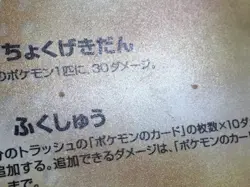 ちょくげきだん
のポケモン1匹に、30ダメージ。
ふくしゅう
分のトラッシュの「ポケモンのカード」の枚数×10ダ
追加する。追加できるダメージは、「ポケモンのカー
まで。